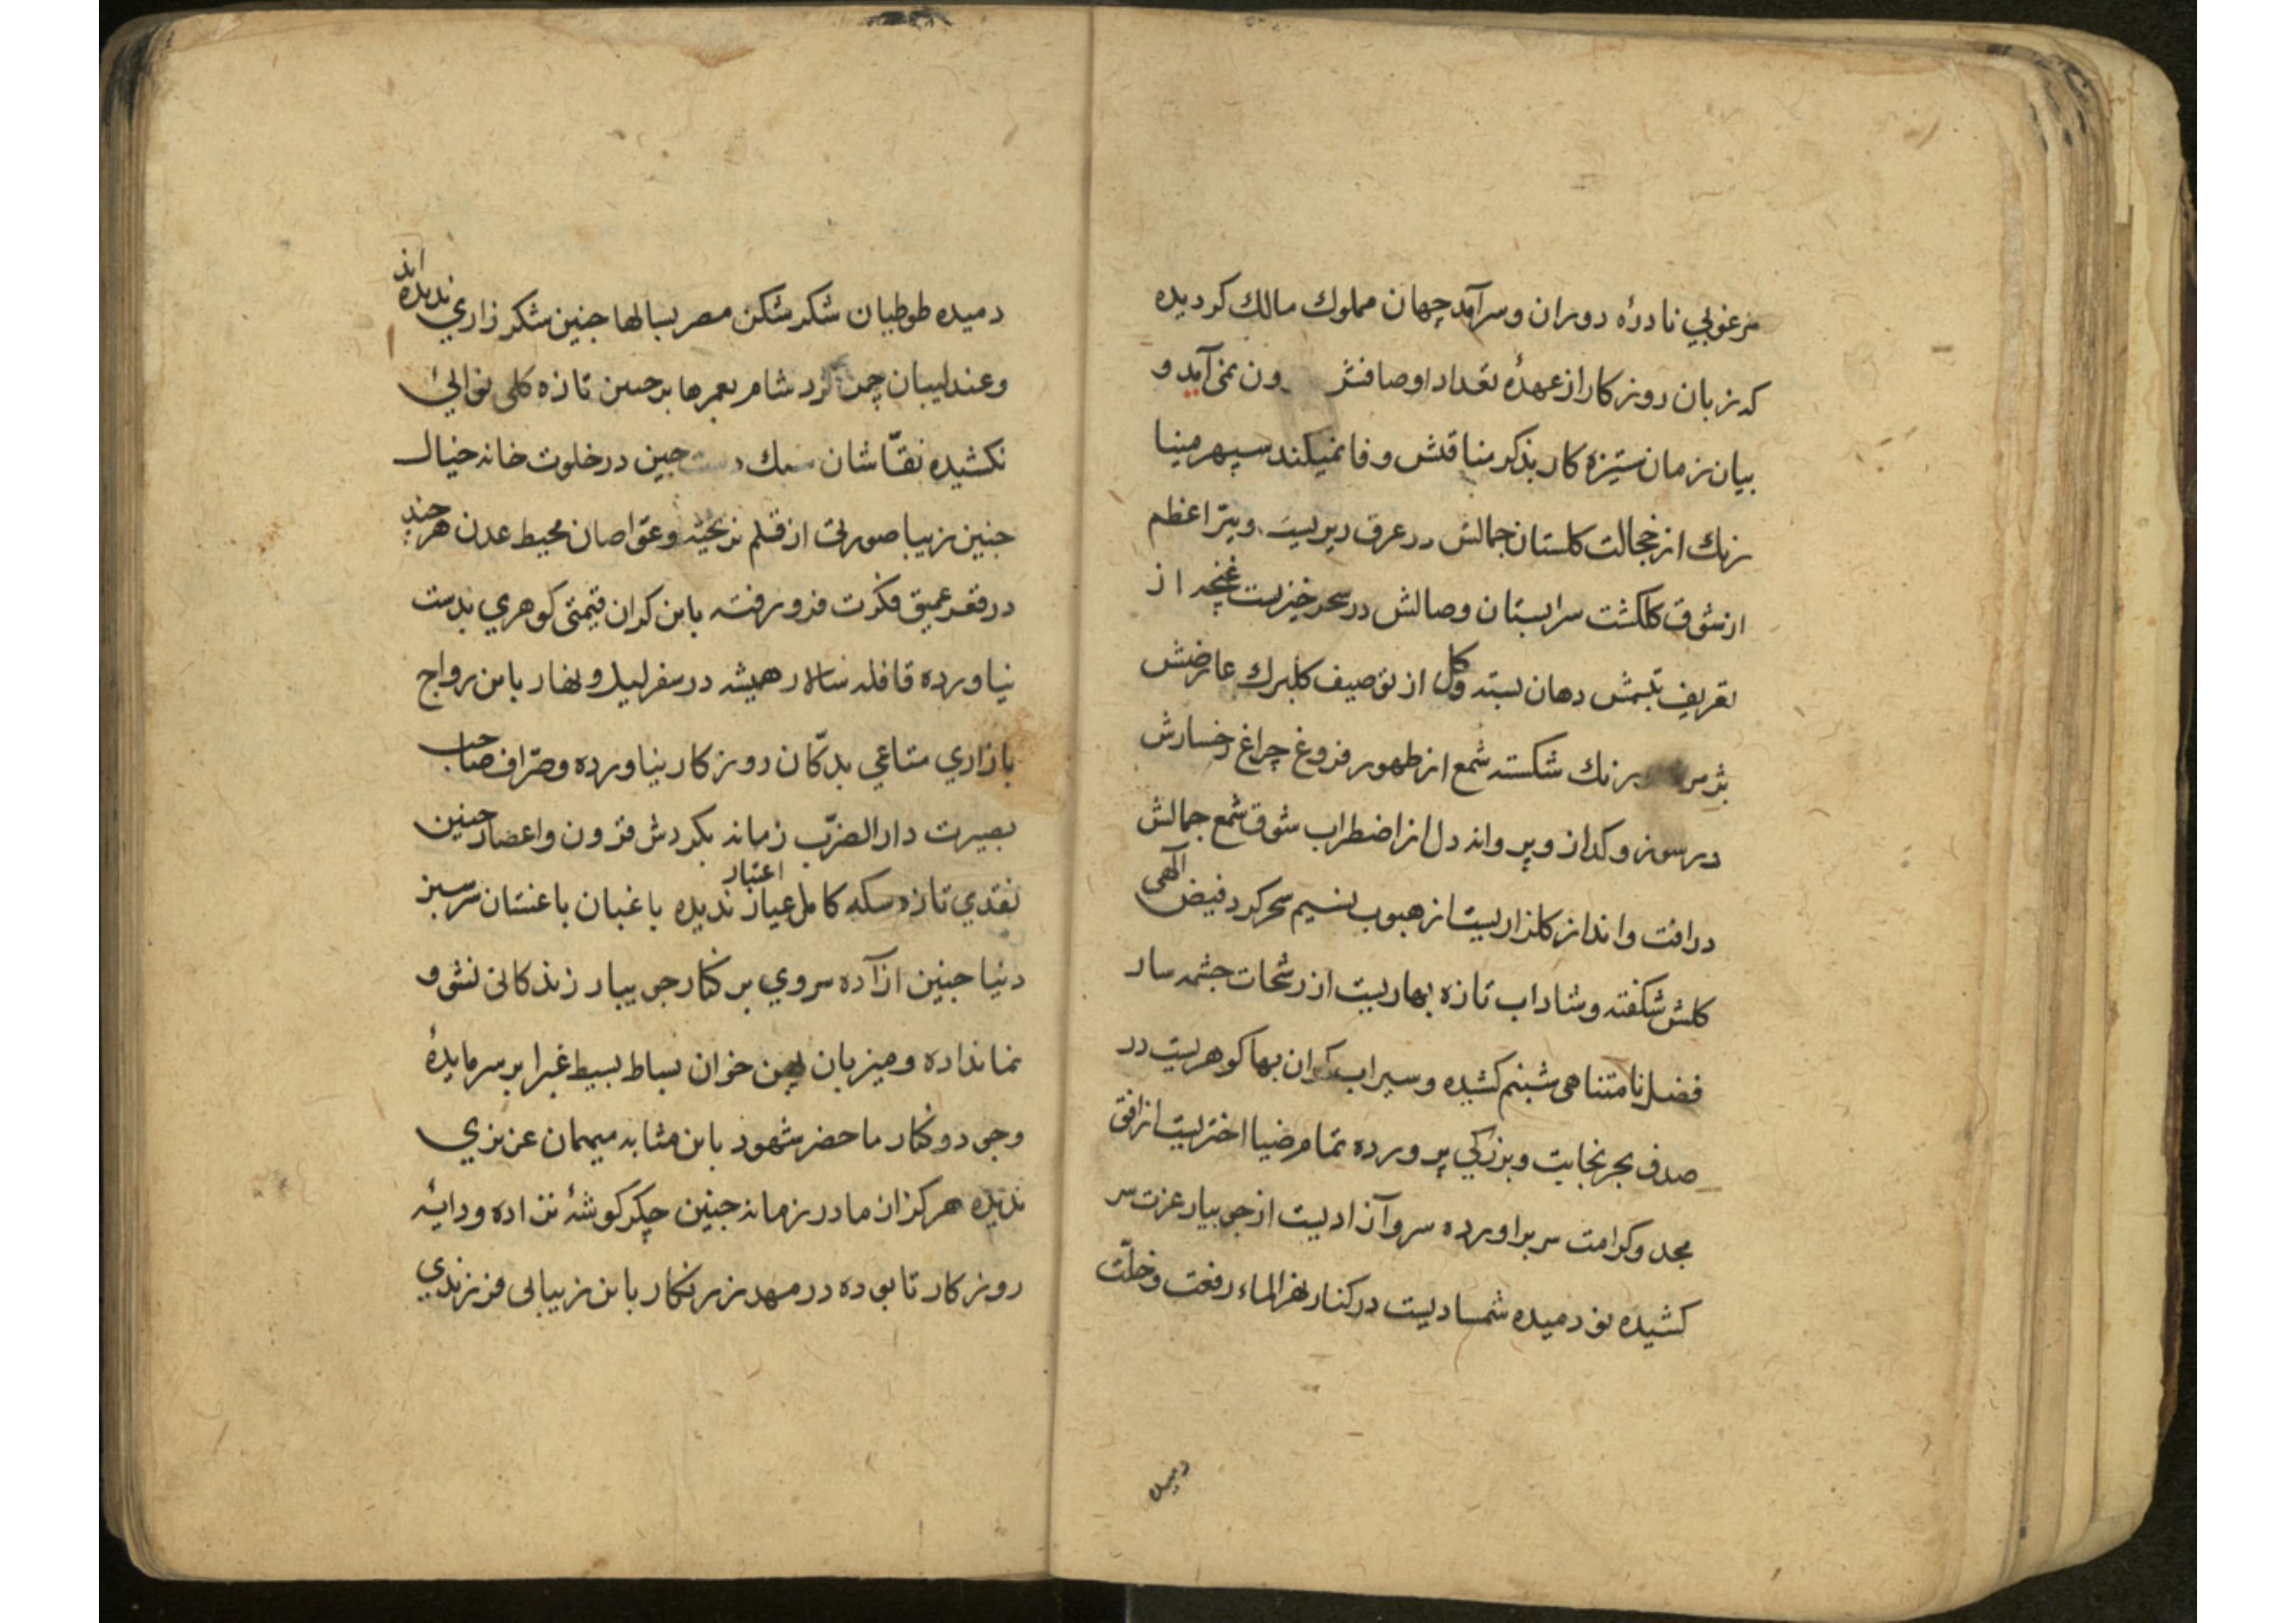 مرغوبي نادرهٔ دوران وسرآمد جهان مملوك مالك كرديده
كه زبان روزكار از عهدهٔ تعداد اوصافش ون نمى آيد و
بيان زمان ستيزه كار بذكر مناقش وفا نميكند سپهر مينا
رنك از خجالت كلستان جمالش در عرق ريزيست ونيّر اعظم
از شوق كلكشت سرابستان وصالش در سحرخيزيست غنچه از
تعريف تبسمش دهان بسته وكل از توصيف كلبرك عارضش
رنك شكسته شمع از ظهور فروغ چراغ رخسارش
در سوز وكداز و پروانه دل از اضطراب شوق شمع جمالش
درافت وانداز كلزاريست از هبوب نسيم سحركرد فيض الٓهى
كلش شكفته وشاداب تازه بهاريست از رشحات چشمه سار
فضل نامتناهى شبنم كشيده وسيراب كران بها كوهريست در
صدف بحر نجابت وبزركي پرورده تمام ضيا اختريست از افق
مجد وكرامت سر براورده سرو آزاديست از جويبار عزت سر
كشيده نو دميده شمساديست در كنار نهر الماء رفعت وخلّت
دميده
دميده طوطيان شكر شكن مصر بسالها چنين شكر زاري نديده اند
وعندليبان چمن كرد شام بعمرها بر چنين تازه كلى نوائي
نكشيده نقّاشان سبك دست چين در خلوت خانه خيال
چنين زيبا صورتى از قلم نريخته وغوّاصان محيط عدن هر چند
در قعر عميق فكرت فرو رفته باين كران قيمتى كوهري بدست
نياورده قافله سالار هميشه در سفر ليل ونهار باين رواج
بازاري متاعي بدكّان روزكار نياورده وصرّاف صاحب
بصيرت دار الضرّب زمانه بكردش قرون واعصار چنين
نقدي تازه سكه كامل عيار اعتبار نديده باغبان باغستان سرسبز
دنيا چنين ازآده سروي بر كنار جويبار زندكانى نشو و
نما نداده وميزبان پهن خوان بساط بسيط غبرا بر سر مايدهٔ
وجود وكنار ماحضر شهود باين مثابه ميهمان عزيزي
نديده هركز ان مادر زمانه چنين جكر كوشهٔ نزاده ودايهٔ
روزكار تا بوده در مهد زرنكار باين زيبائى فرزندي